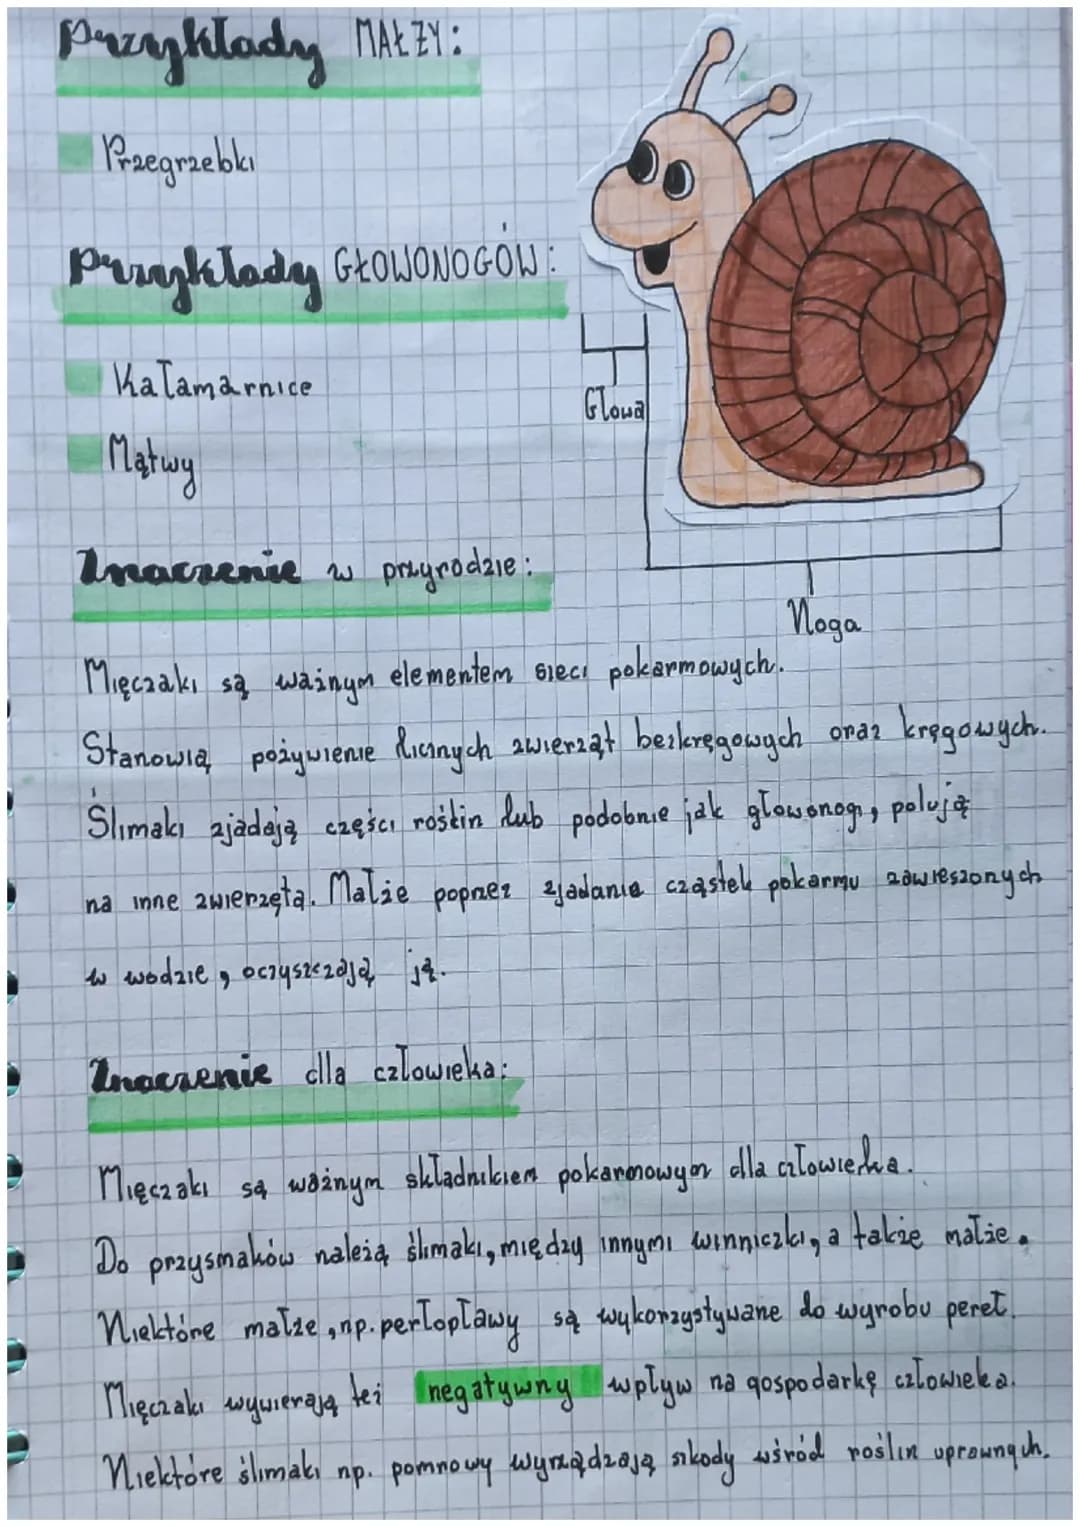 Przykłady MAŁŻY:
Przegrzebki
Przykłady GŁOWONOGÓW:
Kałamarnice
Głowa
Mątwy
Znaczenie w przyrodzie:
Noga
Mięczaki są ważnym elementem sieci pokarmowych.
Stanowią pożywienie licznych zwierząt bezkręgowych oraz kręgowych.
Ślimaki zjadają części roślin lub podobnie jak głowonogi, polują
na inne zwierzęta. Małże poprzez zjadanie cząstek pokarmu zawieszonych
w wodzie, oczyszczają ją.
Znaczenie dla człowieka:
Mięczaki są ważnym składnikiem pokarmowym dla człowieka.
Do przysmaków należą ślimaki, między innymi winniczki, a także małże.
Niektóre małże, np. perłopławy są wykorzystywane do wyrobu pereł.
Mięczaki wywierają też negatywny wpływ na gospodarkę człowieka.
Niektóre ślimaki np. pomrowy wyrządzają szkody wśród roślin uprawnych.